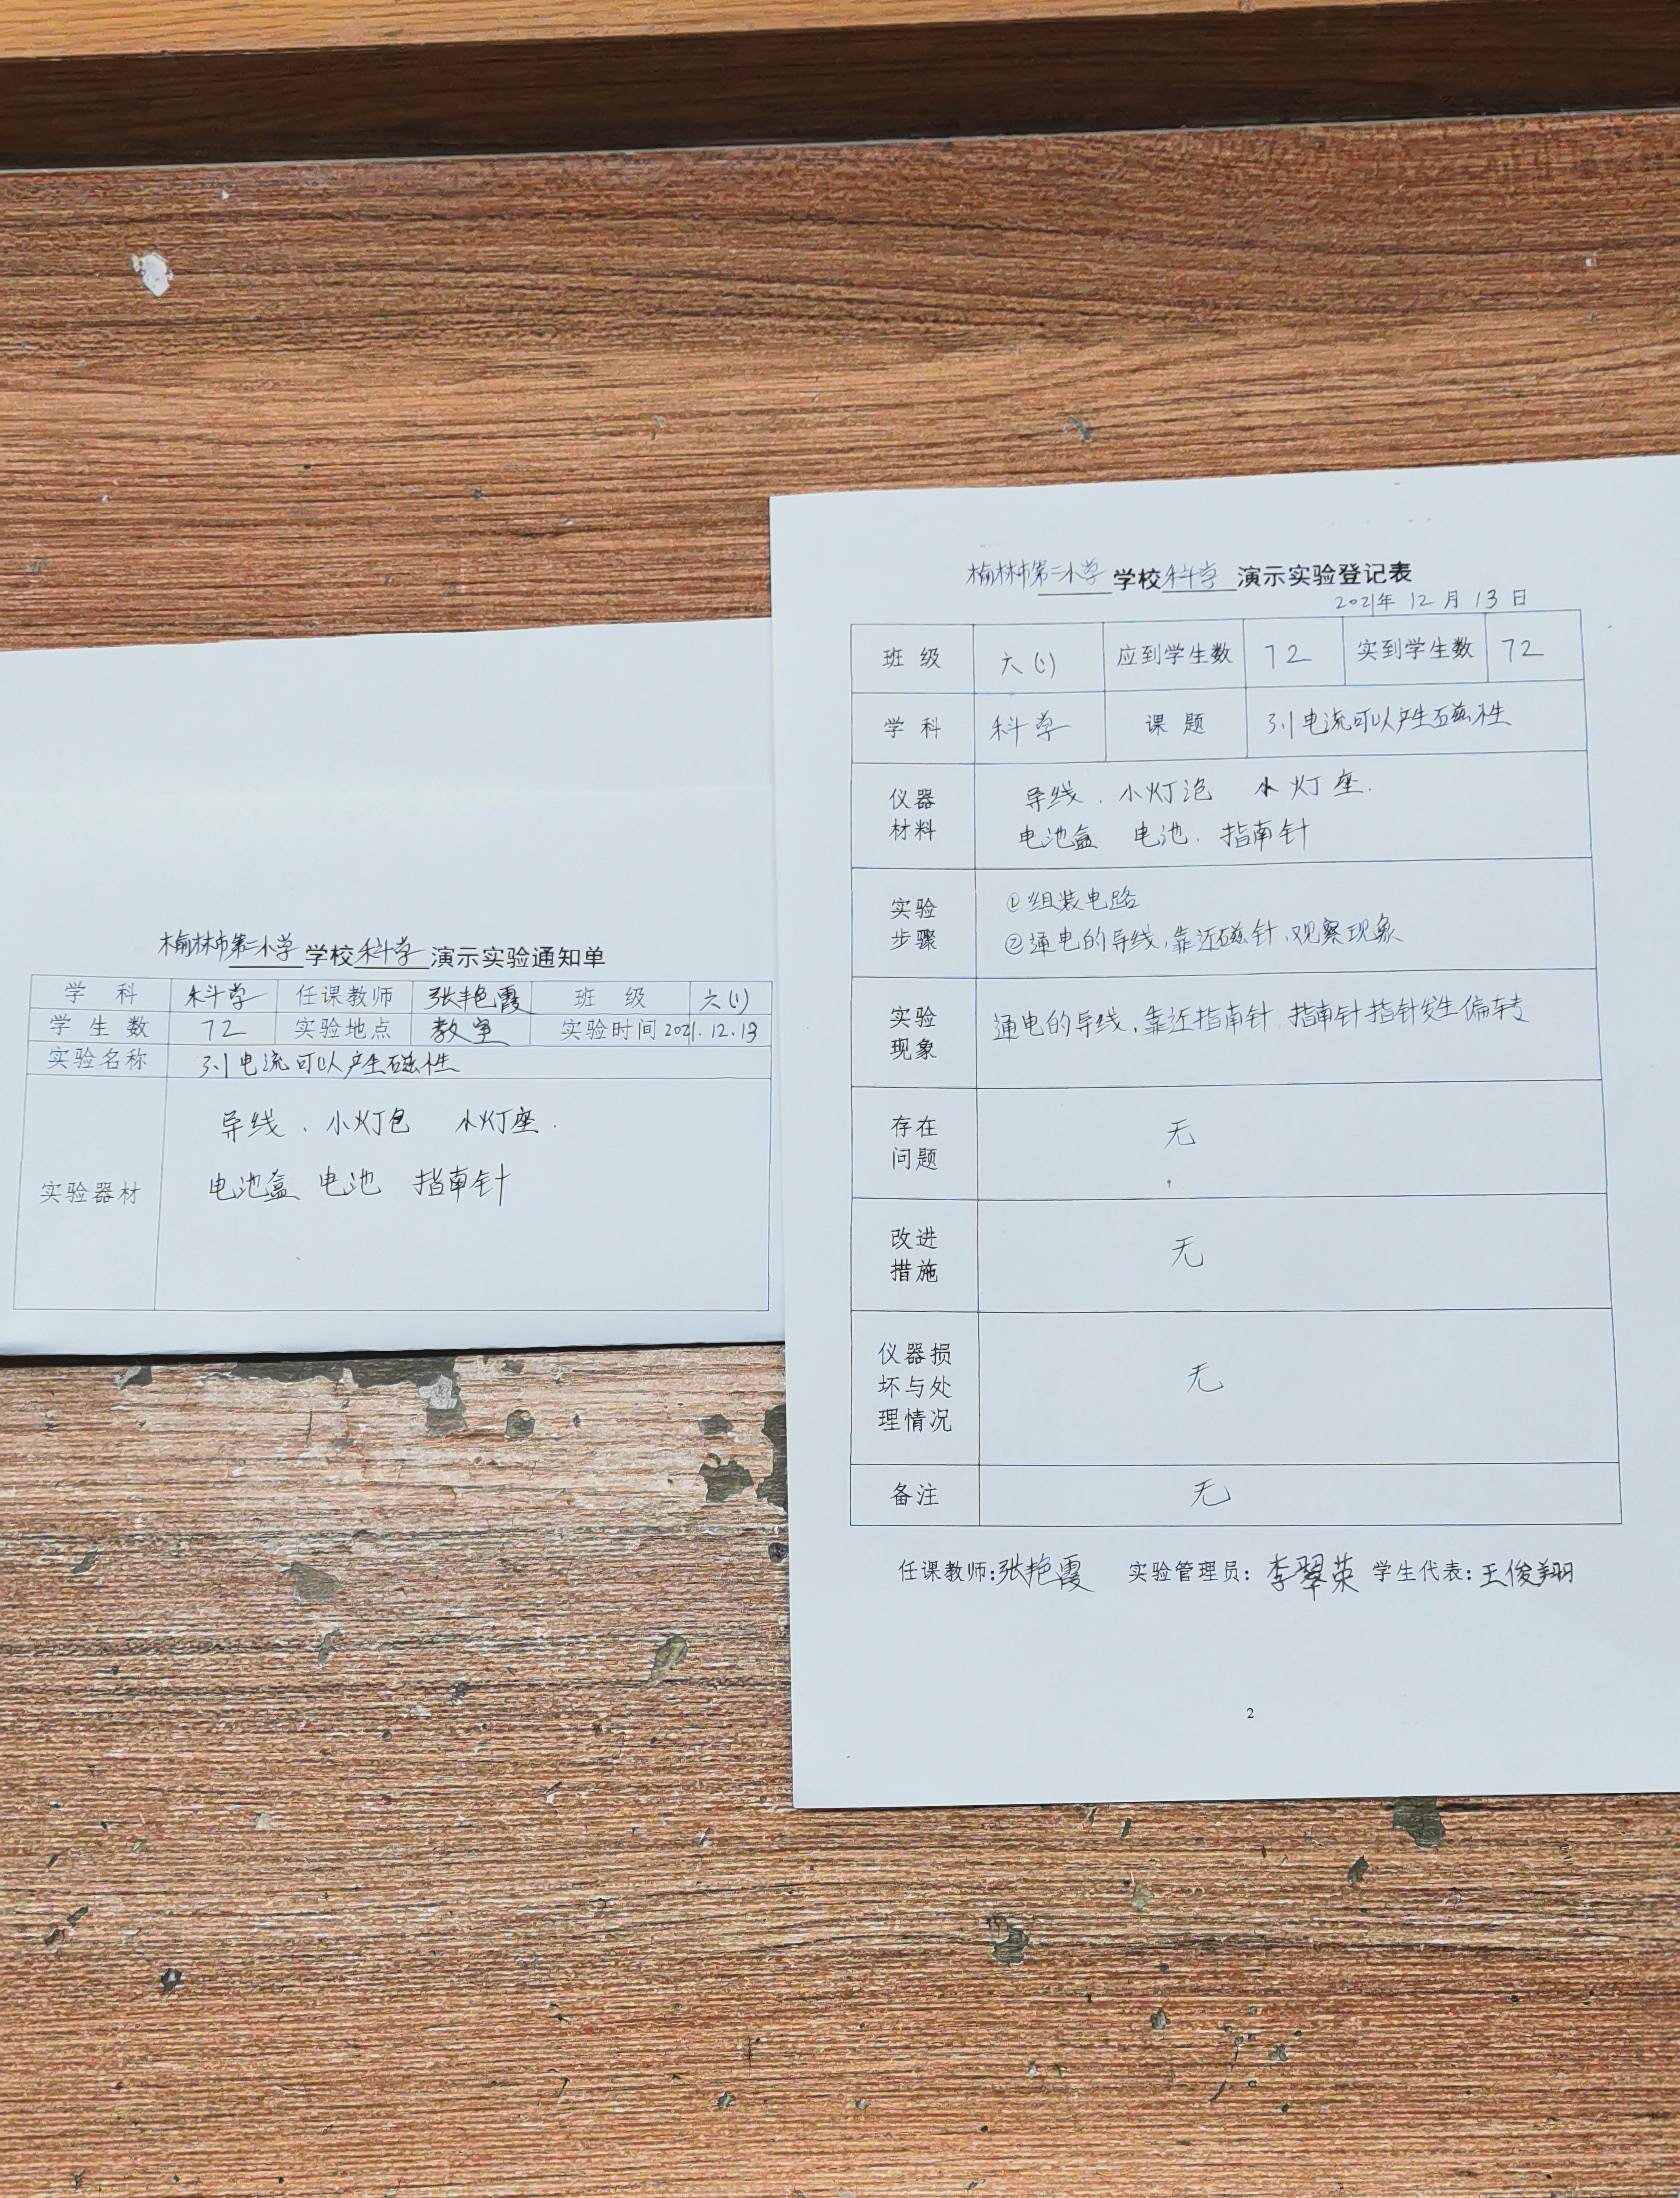 榆林市第二小学 学校 科学 演示实验通知单
学 科 科学 任课教师 张艳霞 班 级 六(1)
学 生 数 72 实验地点 教室 实验时间 2021.12.13
实验名称 3.1 电流可以产生磁性
实验器材
导线、小灯包 小灯座.
电池盒 电池 指南针
榆林市第二小学 学校 科学 演示实验登记表
2021年 12 月 13 日
班 级 六(1) 应到学生数 72 实到学生数 72
学 科 科学 课 题 3.1 电流可以产生磁性
仪器
材料
导线、小灯泡 小灯座.
电池盒 电池. 指南针
实验
步骤
①组装电路
②通电的导线,靠近磁针,观察现象
实验
现象
通电的导线,靠近指南针,指南针指针发生偏转
存在
问题
无
改进
措施
无
仪器损
坏与处
理情况
无
备注 无
任课教师:张艳霞 实验管理员:李翠英 学生代表:王俊翔
2